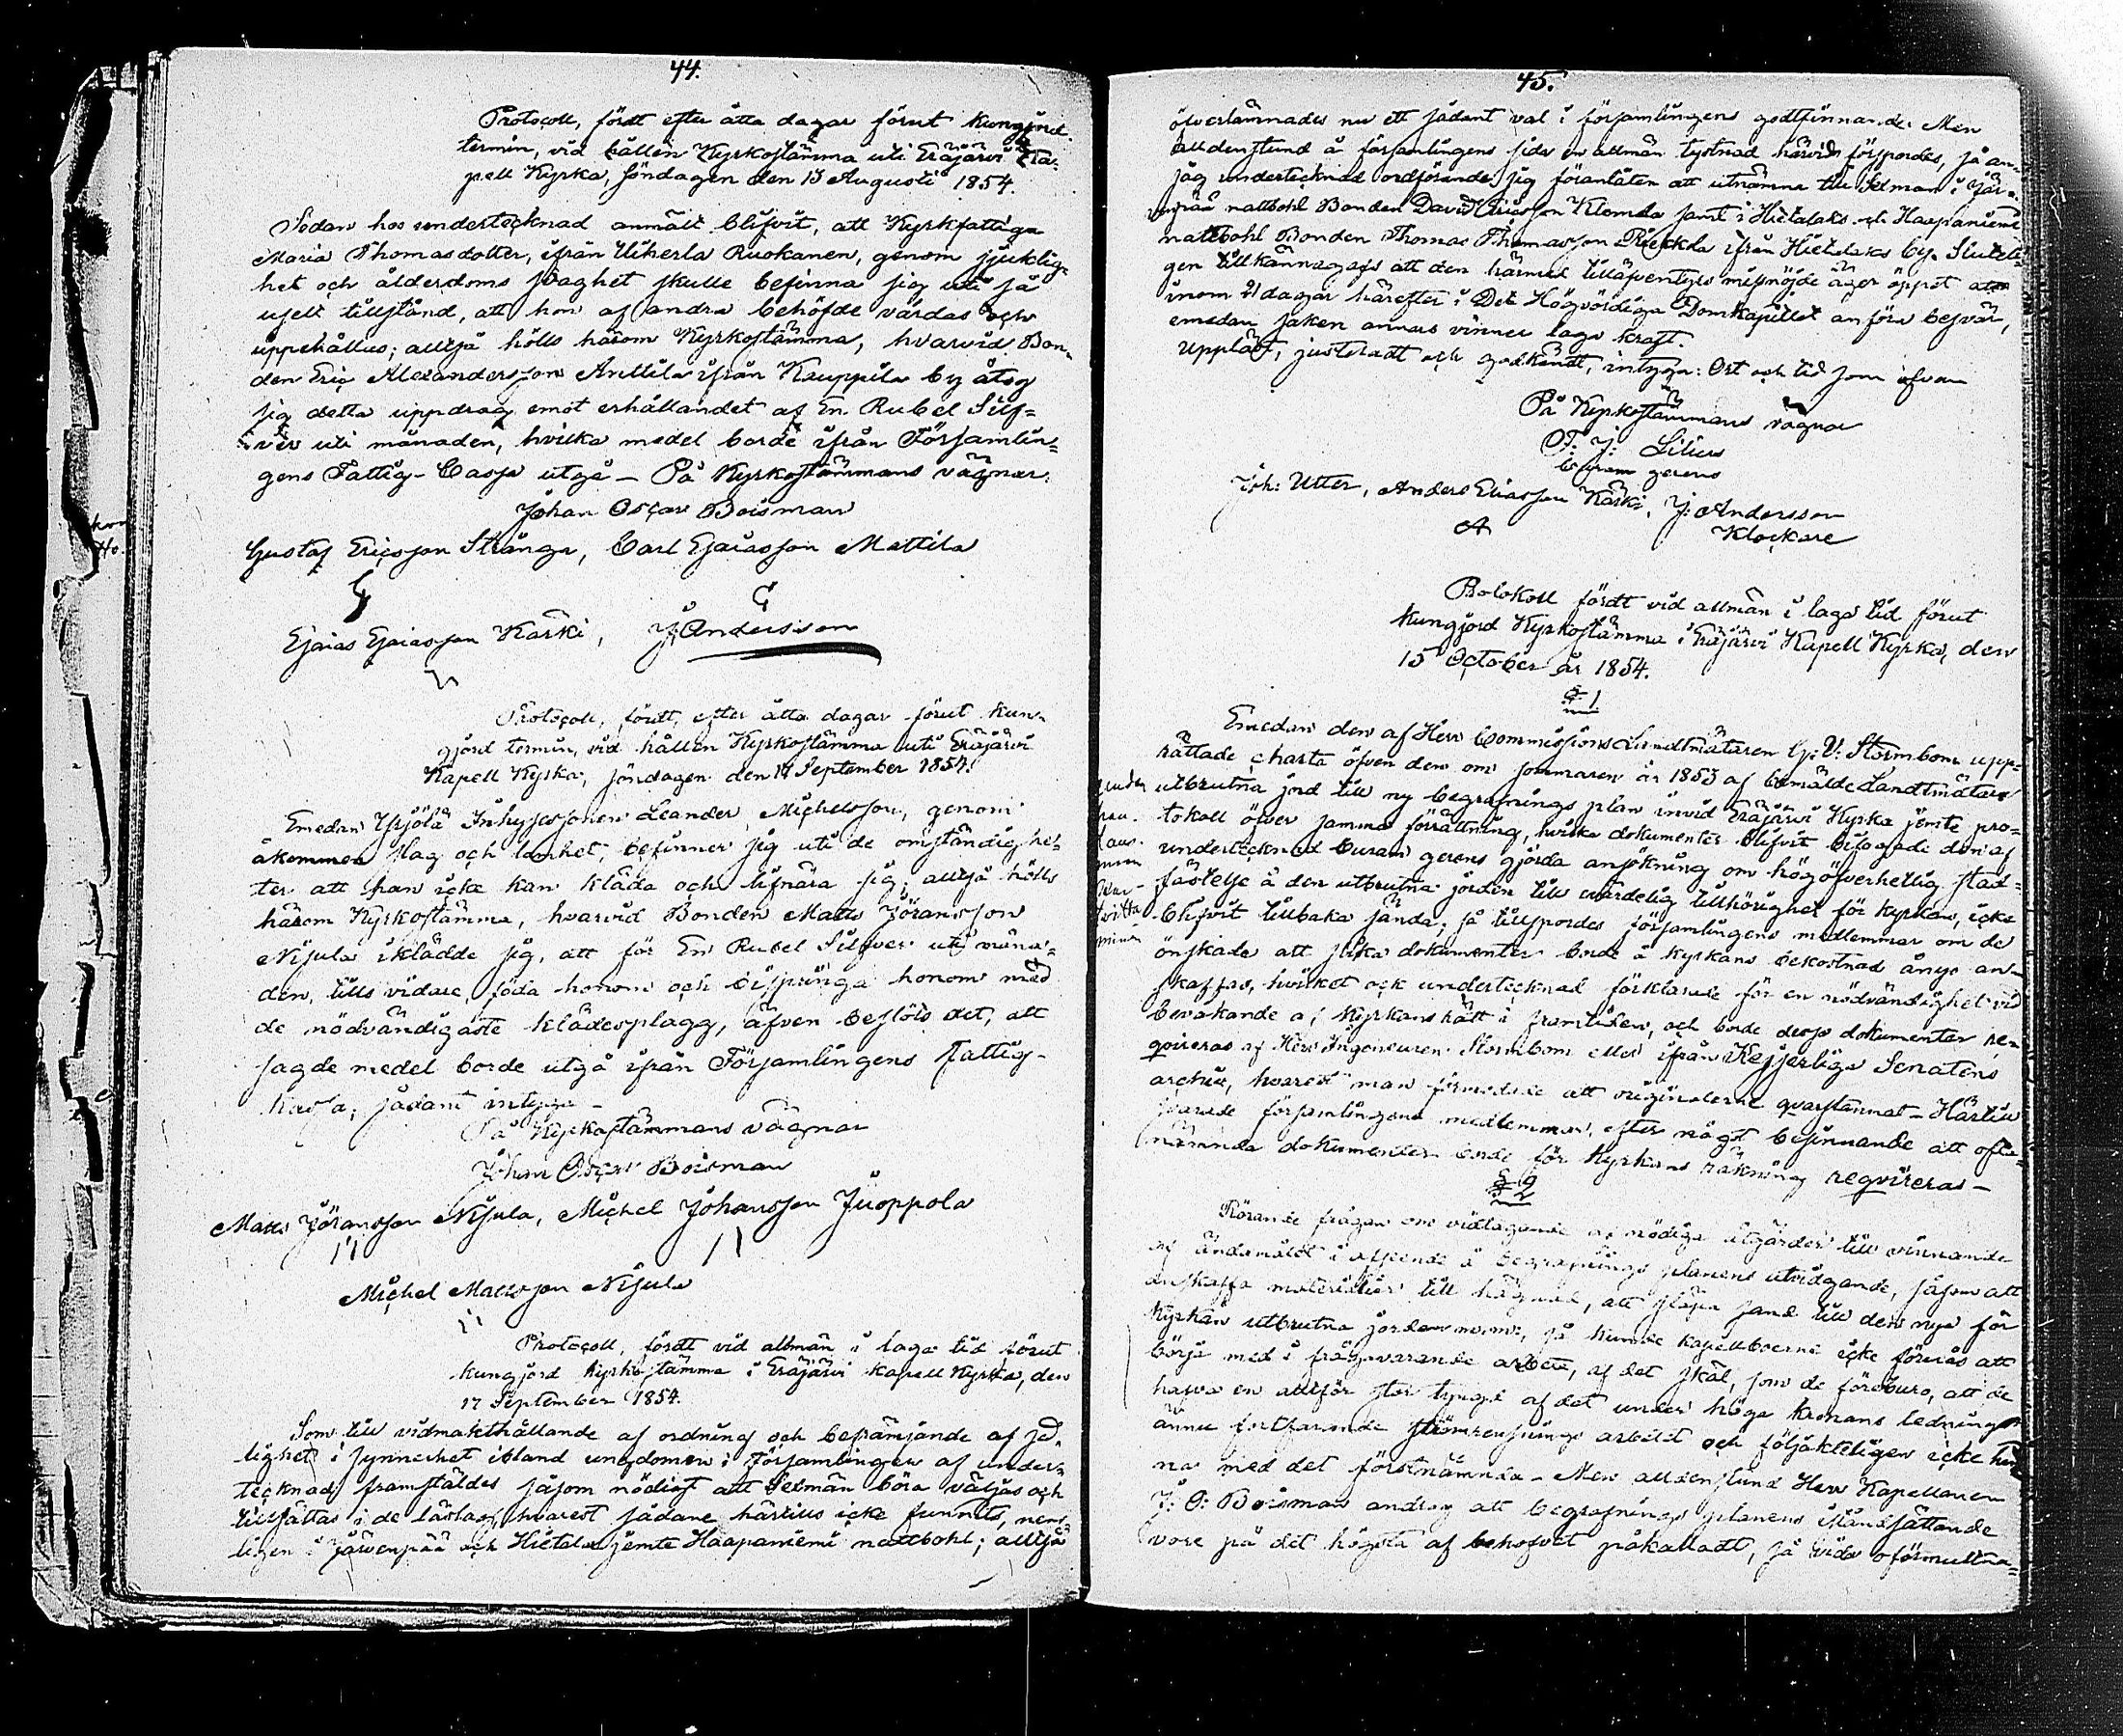 44.
Protocoll, fördt efter åtta dagar förut kungjord
termin, vid hållen Kyrkostämma uti Eräjärvi Ka-
pell Kyrka, Söndagen den 13 Augusti 1854.
Sedan hos undertecknad anmält blifvit, att Kyrkfattiga
Maria Thomasdotter, ifrån Uiherla Ruokanen, genom sjuklig-
het och ålderdoms svaghet skulle befinna sig uti så
uselt tillstånd, att hon af andra behöfde vårdas och
uppehållas; alltså hölls härom Kyrkostämma, hvarvid Bon-
den Eric Alexandersson Anttila ifrån Kauppila by åtog
sig detta uppdrag emot erhållandet af En Rubel Silf-
ver uti månaden, hvilka medel borde ifrån Församlin-
gens Fattig-Cassa utgå – På Kyrkostämmans vägnar:
Johan Oscar Boisman
Gustaf Ericsson Strånga, Carl Esaiasson Mattila
Esaias Esaiasson Kärki, J. Andersson
Protocoll, fördt, efter åtta dagar förut kun-
gjord termin, vid hållen Kyrkostämma uti Eräjärvi
Kapell Kyrka, söndagen den 17 September 1854.
Emedan Yrjölä Inhysessonen Leander Michelsson, genom
åkommen slag och lamhet, befinner sig uti de omständighe-
ter att han icke kan kläda och lifnära sig; alltså hölls
härom Kyrkostämma, hvarvid Bonden Matts Jöransson
Nisula iklädde sig, att för En Rubel Silfver uti måna-
den, tills vidare, föda honom och bispringa honom med
de nödvändigaste klädesplagg, äfven beslöts det, att
sagde medel borde utgå ifrån Församlingens Fattig-
Kassa; sådant intyga –
På Kyrkostämmans vägnar
Johan Oscar Boisman
Matts Jöransson Nisula, Michel Johansson Juoppola
Michel Mattsson Nisula
Protocoll, fördt vid allmän i laga tid förut
kungjord Kyrkostämma i Eräjärvi Kapell Kyrka, den
17 September 1854.
Som till vidmakthållande af ordning och befrämjande af sed-
lighet i synnerhet ibland ungdomen i Församlingen af under-
tecknad framställdes såsom nödigt att Sexmän böra väljas och
tillsättas i de läslag, hvarest sådane härtills icke funnits, nem-
ligen i Järvenpää och Hietala jemte Haapaniemi nattbohl; alltså
45.
öfverlämnades nu ett sådant val i församlingens godtfinnande. Men
alldenstund å församlingens sida en allmän tystnad härvid förspordes, så an-
såg undertecknad ordförande sig föranlåten att utnämna till Sexman i Jär-
venpää nattbohl Bonden David Ericsson Klemola samt i Hietalaks och Haapaniemi
nattbohl Bonden Thomas Thomasson Rieckla ifrån Hietalaks by. Slutli-
gen tillkännagafs att den härmed tilläfventyrs missnöjde äger öppet att
inom 21 dagar härefter i Det Högvördiga Domkapitlet anföra besvär,
emedan saken annars vinner laga kraft.
Uppläst, justeradt och godkändt, intyga: Ort och tid som ofvan
På Kyrkostämmans vägnar
F: J: Lilius
Curam gerens
Joh: Utter, Anders Eliasson Kärki, J: Andersson
Klockare
Protokoll fördt vid allmän i laga tid förut
kungjord Kyrkostämma i Eräjärvi Kapell Kyrka, den
15 October år 1854.
§ 1
Emedan den af Herr Commissions Landtmätaren G: V: Stormbom upp-
rättade charta öfven den om sommaren år 1853 af bemälde Landtmätare
utbrutna jord till ny begrafnings plan invid Eräjärvi Kyrka jemte pro-
tokoll öfver samma förrättning, hvilka dokumenter blifvit bilagade den af
undertecknad Curam gerens gjorda ansökning om högöfverhetlig stad-
fästelse å den utbrutna jorden till värdelig tillhörighet för kyrkan, icke
blifvit tillbaka sända; så tillspordes församlingens medlemmar om de
önskade att slika dokumenter borde å kyrkans bekostnad ånyo an-
skaffas, hvilket ock undertecknad förklarade för en nödvändighet vid
bevakande af Kyrkans rätt i framtiden, och borde dessa dokumenter re-
qvireras af Herr Ingenieuren Stormbom eller ifrån Kejserliga Senatens
archiv, hvarest man förmodade att originalerne qvarstannat – Härtill
svarade församlingens medlemmar, efter något besinnande att ofta-
nämnda dokumenter borde för Kyrkans räkning reqvireras –
§ 2
Rörande frågan om vidtagande af nödiga åtgärder till vinnande
af ändamålet i afseende å begrafnings planens utvidgande, såsom att
anskaffa materialier till hägnad, att släpa sand till den nya för
Kyrkan utbrutna jorden m.m; så kunde kapellboerne icke förmås att
börja med i frågavarande arbete, af det skäl, som de föreburo, att de
hafva en alltför stor tyngd af det under höga Kronans ledning
ännu fortfarande strömrensnings arbetet och följaktligen icke hin-
na med det förstnämnda – Men alldenstund Herr Kapellanen
J: O: Boisman androg att begrafnings planens iståndsättande
vore på det högsta af behofvet påkalladt, så vida oförmultna-